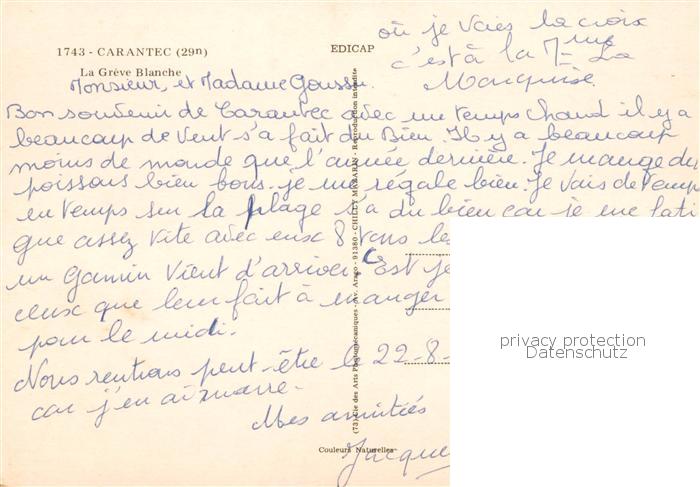 1743 - CARANTEC (29n)
La Grève Blanche
EDICAP
où je vais la croix
c'est à la Mme La
Marquise.
Monsieur et Madame
Bon souvenir de Carantec avec un temps chaud il y a
beaucoup de vent s'a fait du Bien. Il y a beaucoup
moins de monde que l'année dernière. Je mange du
poissons bien bons. je me régale bien. Je vais de temps
en temps sur la plage s'a du bien car je me fati
que assez vite avec eux 8 vous les
un Gamin vient d'arriver C'est je
ceux que leur fait à manger
pour le midi.
Nous rentrons peut-être le 22-8-
car j'en ai marre.
Mes amitiés
Jacque
(73) Cie des Arts Photomécaniques - Av. Arago - 91380 - CHILLY MAZARIN - Reproduction interdite
Couleurs Naturelles
privacy protection
Datenschutz